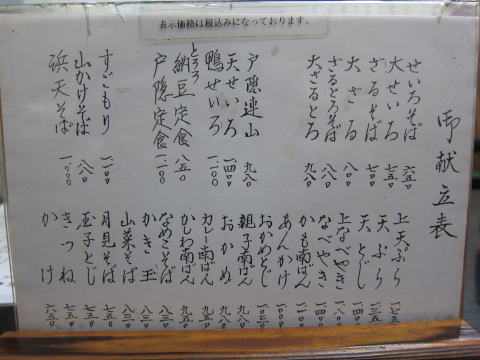 表示価格は税込みになっております。
御献立表
せいろそば 六五〇
大せいろ 七五〇
ざるそば 七〇〇
大ざる 八〇〇
ざるとろそば 八八〇
大ざるとろ 九八〇
戸隠連山 九八〇
天せいろ 一四〇〇
鴨せいろ
とろろ
納豆定食 八五〇
戸隠定食
すごもり
山かけそば 八八〇
浜天そば 一〇〇〇
上天ぷら 一七五〇
天ぷら 一三五〇
天とじ 一四〇〇
上なべやき 一八〇〇
なべやき 一四〇〇
かも南ばん
あんかけ
おかめとじ
親子南ばん 九八〇
おかめ 九八〇
カレー南ばん 九五〇
かしわ南ばん 九五〇
なめこそば 八三〇
かき玉 八三〇
山菜そば 八三〇
月見そば 七五〇
玉子とじ 七五〇
きつね 七五〇
かけ 六五〇